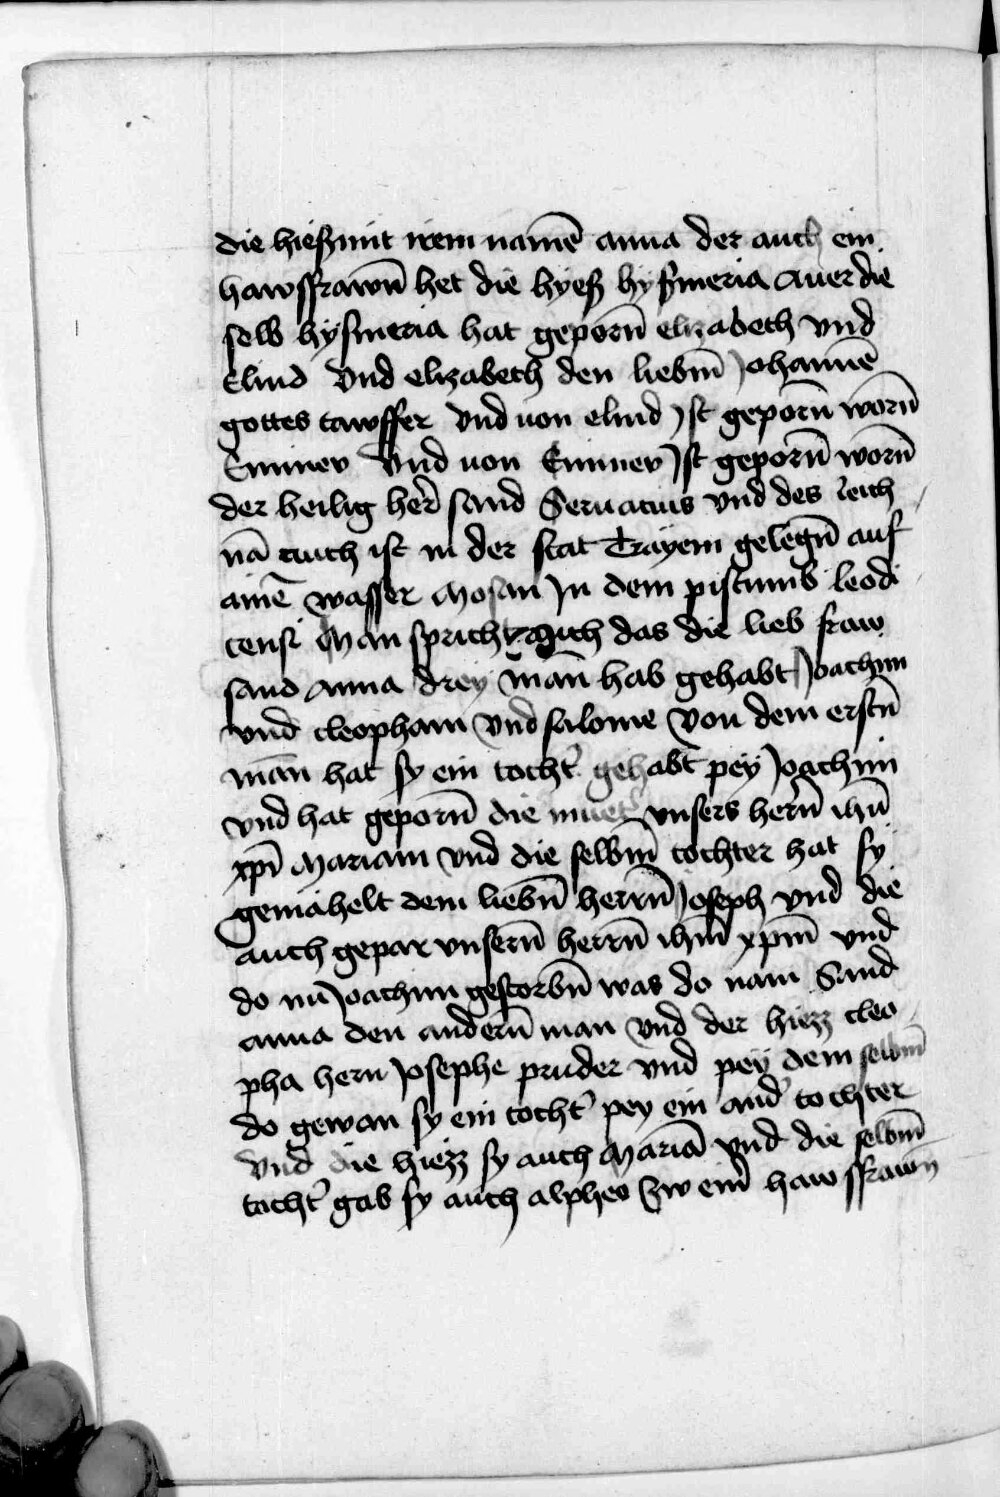 die hieß mit irem namē anna der auch ein
hawsfrawn̄ het die hyeß hysmeria Auer die
selb hysmeria hat geporn̄ elizabeth vnd
Eliud Vnd elizabeth den liebm̄ Johannē
gottes tawffer Vnd uon eliud Jst geporn̄ worn̄
Eminev Vnd uon Eminev Jst geporn̄ worn̄
der heilig her̄ sand Seruacius vnd des leich
nā auch ist in der stat Trayem gelegn̄ auf
ainē wasser Mosan Jn dem pistumb leodi
censi Man spricht auch das die lieb fraw
sand Anna drey man̄ hab gehabt Joachim
vnd cleopham Vnd salome Von dem erstn̄
man̄ hat sy ein tocht̓ gehabt pey Joachim
vnd hat geporn̄ die muet̓ vnsers hern̄ ihū
xpī Mariam vnd die selbm̄ tochter hat sy
gemahelt dem liebn̄ herrn̄ Joseph vnd die
auch gepar vnsern̄ herrn̄ ihm̄ xpm̄ vnd
do nū Joachim gestorbn̄ was do nam Sand
anna den andern̄ man vnd der hiezz cleo
pha hern Josephe pruder vnd pey dem selbm̄
do gewan sy ein tocht̓ pey ein and̓ tochter
Vnd die hiezz sy auch Mariā vnd die selbm̄
tocht̓ gab sy auch alpheo Czw ein̄ hawsfrawn̄